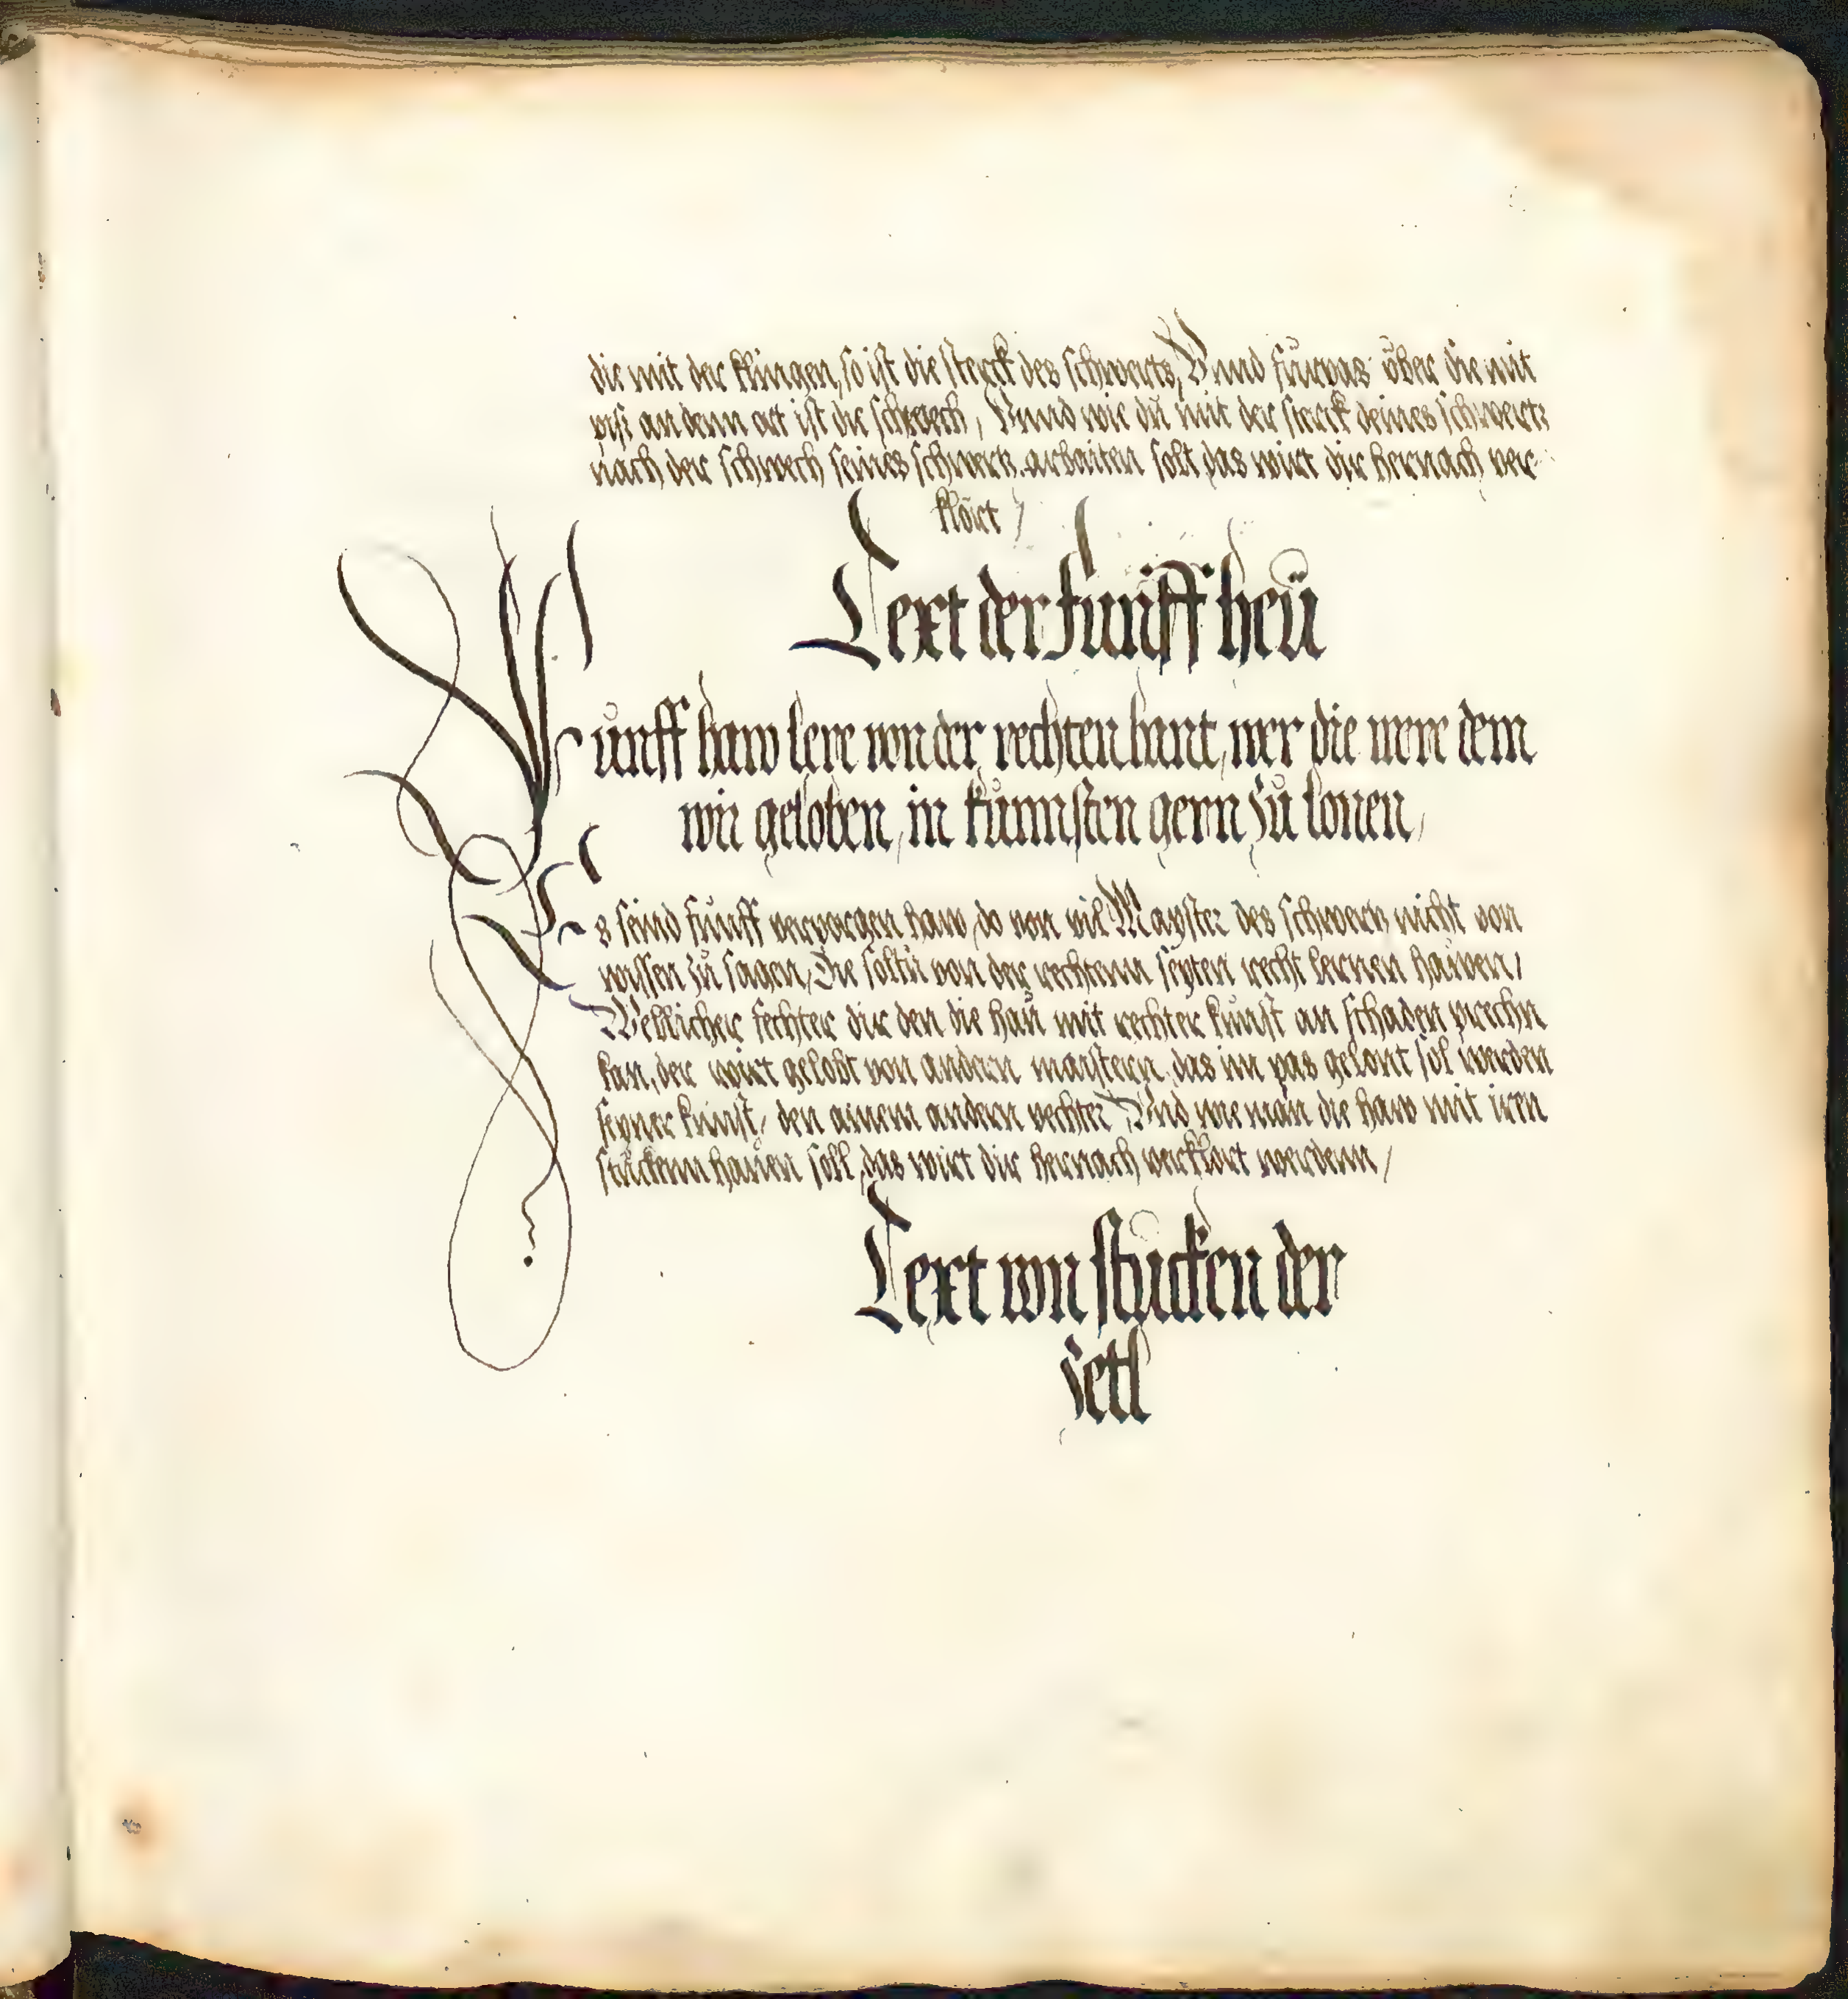 die mit der klingen, so ist die sterck des schwerts, Vnnd fürbas über die mit
piß an denn ort ist die schwech, Vnnd wie dü mit der sterck deines schwerts
nach der schwech seines schwerts arbaiten solt das wirt dir hernach ver
klört /
Text der funff heü
Fünff haw lere von der rechten hant, wer die were dem
wir geloben, in künnsten gern zü lonen,
Es seind fünff verporgen haw do von vil Mayster des schwerts nicht von
wissen zü sagen, Die soltü von der rechtenn seyten recht lernen haüen /
Wellicher fechter dir den die haü mit rechter kunst an schaden prechn
kan, der wirt gelobt von andern maystern, das im pas gelont sol werden
seyner kunst, den ainem andern vechter, Vnd wie man die haw mit iren
stückenn haüen soll, das wirt dir hernach verklort werdenn /
Text von stucken der
zetl